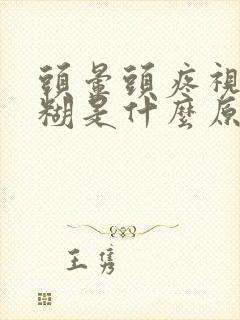 頭暈頭疼視
糊是什麼原
王隽